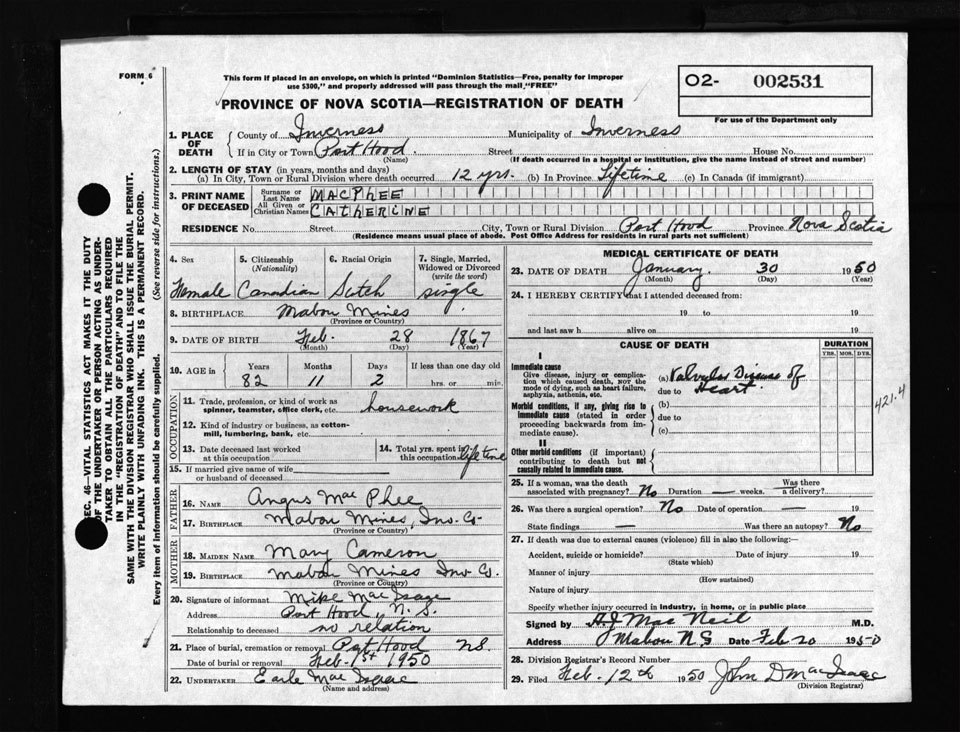 FORM 6
This form if placed in an envelope, on which is printed "Dominion Statistics—Free, penalty for improper
use $300," and properly addressed will pass through the mail "FREE"
PROVINCE OF NOVA SCOTIA—REGISTRATION OF DEATH
O2- 002531
For use of the Department only
1. PLACE OF DEATH County of Inverness Municipality of Inverness
If in City or Town Port Hood (Name) Street House No.
(If death occurred in a hospital or institution, give the name instead of street and number)
2. LENGTH OF STAY (in years, months and days)
(a) In City, Town or Rural Division where death occurred 12 yrs. (b) In Province Lifetime (c) In Canada (if immigrant)
3. PRINT NAME OF DECEASED Surname or Last Name MACPHEE
All Given or Christian Names CATHERINE
RESIDENCE No. Street City, Town or Rural Division Port Hood Province Nova Scotia
(Residence means usual place of abode. Post Office Address for residents in rural parts not sufficient)
4. Sex 5. Citizenship (Nationality) 6. Racial Origin 7. Single, Married, Widowed or Divorced (write the word)
Female Canadian Scotch single
8. BIRTHPLACE Mabou Mines
(Province or Country)
9. DATE OF BIRTH Feb. 28 1867
(Month) (Day) (Year)
10. AGE in Years Months Days If less than one day old
82 11 2 hrs. or min.
OCCUPATION
11. Trade, profession, or kind of work as spinner, teamster, office clerk, etc. housework
12. Kind of industry or business, as cotton-mill, lumbering, bank, etc.
13. Date deceased last worked at this occupation 14. Total yrs. spent in this occupation lifetime
15. If married give name of wife or husband of deceased
FATHER
16. NAME Angus Mac Phee
17. BIRTHPLACE Mabou Mines, Inv. Co.
(Province or Country)
MOTHER
18. MAIDEN NAME Mary Cameron
19. BIRTHPLACE Mabou Mines Inv Co.
(Province or Country)
20. Signature of informant Mike Mac Isaac
Address Port Hood, N. S.
Relationship to deceased no relation
21. Place of burial, cremation or removal Port Hood NS.
Date of burial or removal Feb. 1st 1950
22. UNDERTAKER Earle Mac Isaac
(Name and address)
MEDICAL CERTIFICATE OF DEATH
23. DATE OF DEATH January 30 1950
(Month) (Day) (Year)
24. I HEREBY CERTIFY that I attended deceased from:
19 to 19
and last saw h alive on 19
CAUSE OF DEATH DURATION
YRS. MOS. DYS.
I
Immediate cause
Give disease, injury or complication which caused death, NOT the mode of dying, such as heart failure, asphyxia, asthenia, etc.
(a) Valvular Disease of
due to Heart
421.4
Morbid conditions, if any, giving rise to immediate cause (stated in order proceeding backwards from immediate cause).
(b)
due to
(c)
II
Other morbid conditions (if important) contributing to death but not causally related to immediate cause.
25. If a woman, was the death associated with pregnancy? No Duration — weeks. Was there a delivery?
26. Was there a surgical operation? No Date of operation — 19
State findings — Was there an autopsy? No
27. If death was due to external causes (violence) fill in also the following:—
Accident, suicide or homicide? Date of injury 19
(State which)
Manner of injury
(How sustained)
Nature of injury
Specify whether injury occurred in industry, in home, or in public place
Signed by A.J Mac Neil M.D.
Address Mabou N.S Date Feb 20 1950
28. Division Registrar's Record Number
29. Filed Feb. 12th 1950 John D MacIsaac
(Division Registrar)
SEC. 46—VITAL STATISTICS ACT MAKES IT THE DUTY
OF THE UNDERTAKER OR PERSON ACTING AS UNDER-
TAKER TO OBTAIN ALL THE PARTICULARS REQUIRED
IN THE "REGISTRATION OF DEATH" AND TO FILE THE
SAME WITH THE DIVISION REGISTRAR WHO SHALL ISSUE THE BURIAL PERMIT.
WRITE PLAINLY WITH UNFADING INK. THIS IS A PERMANENT RECORD.
Every item of information should be carefully supplied. (See reverse side for instructions.)